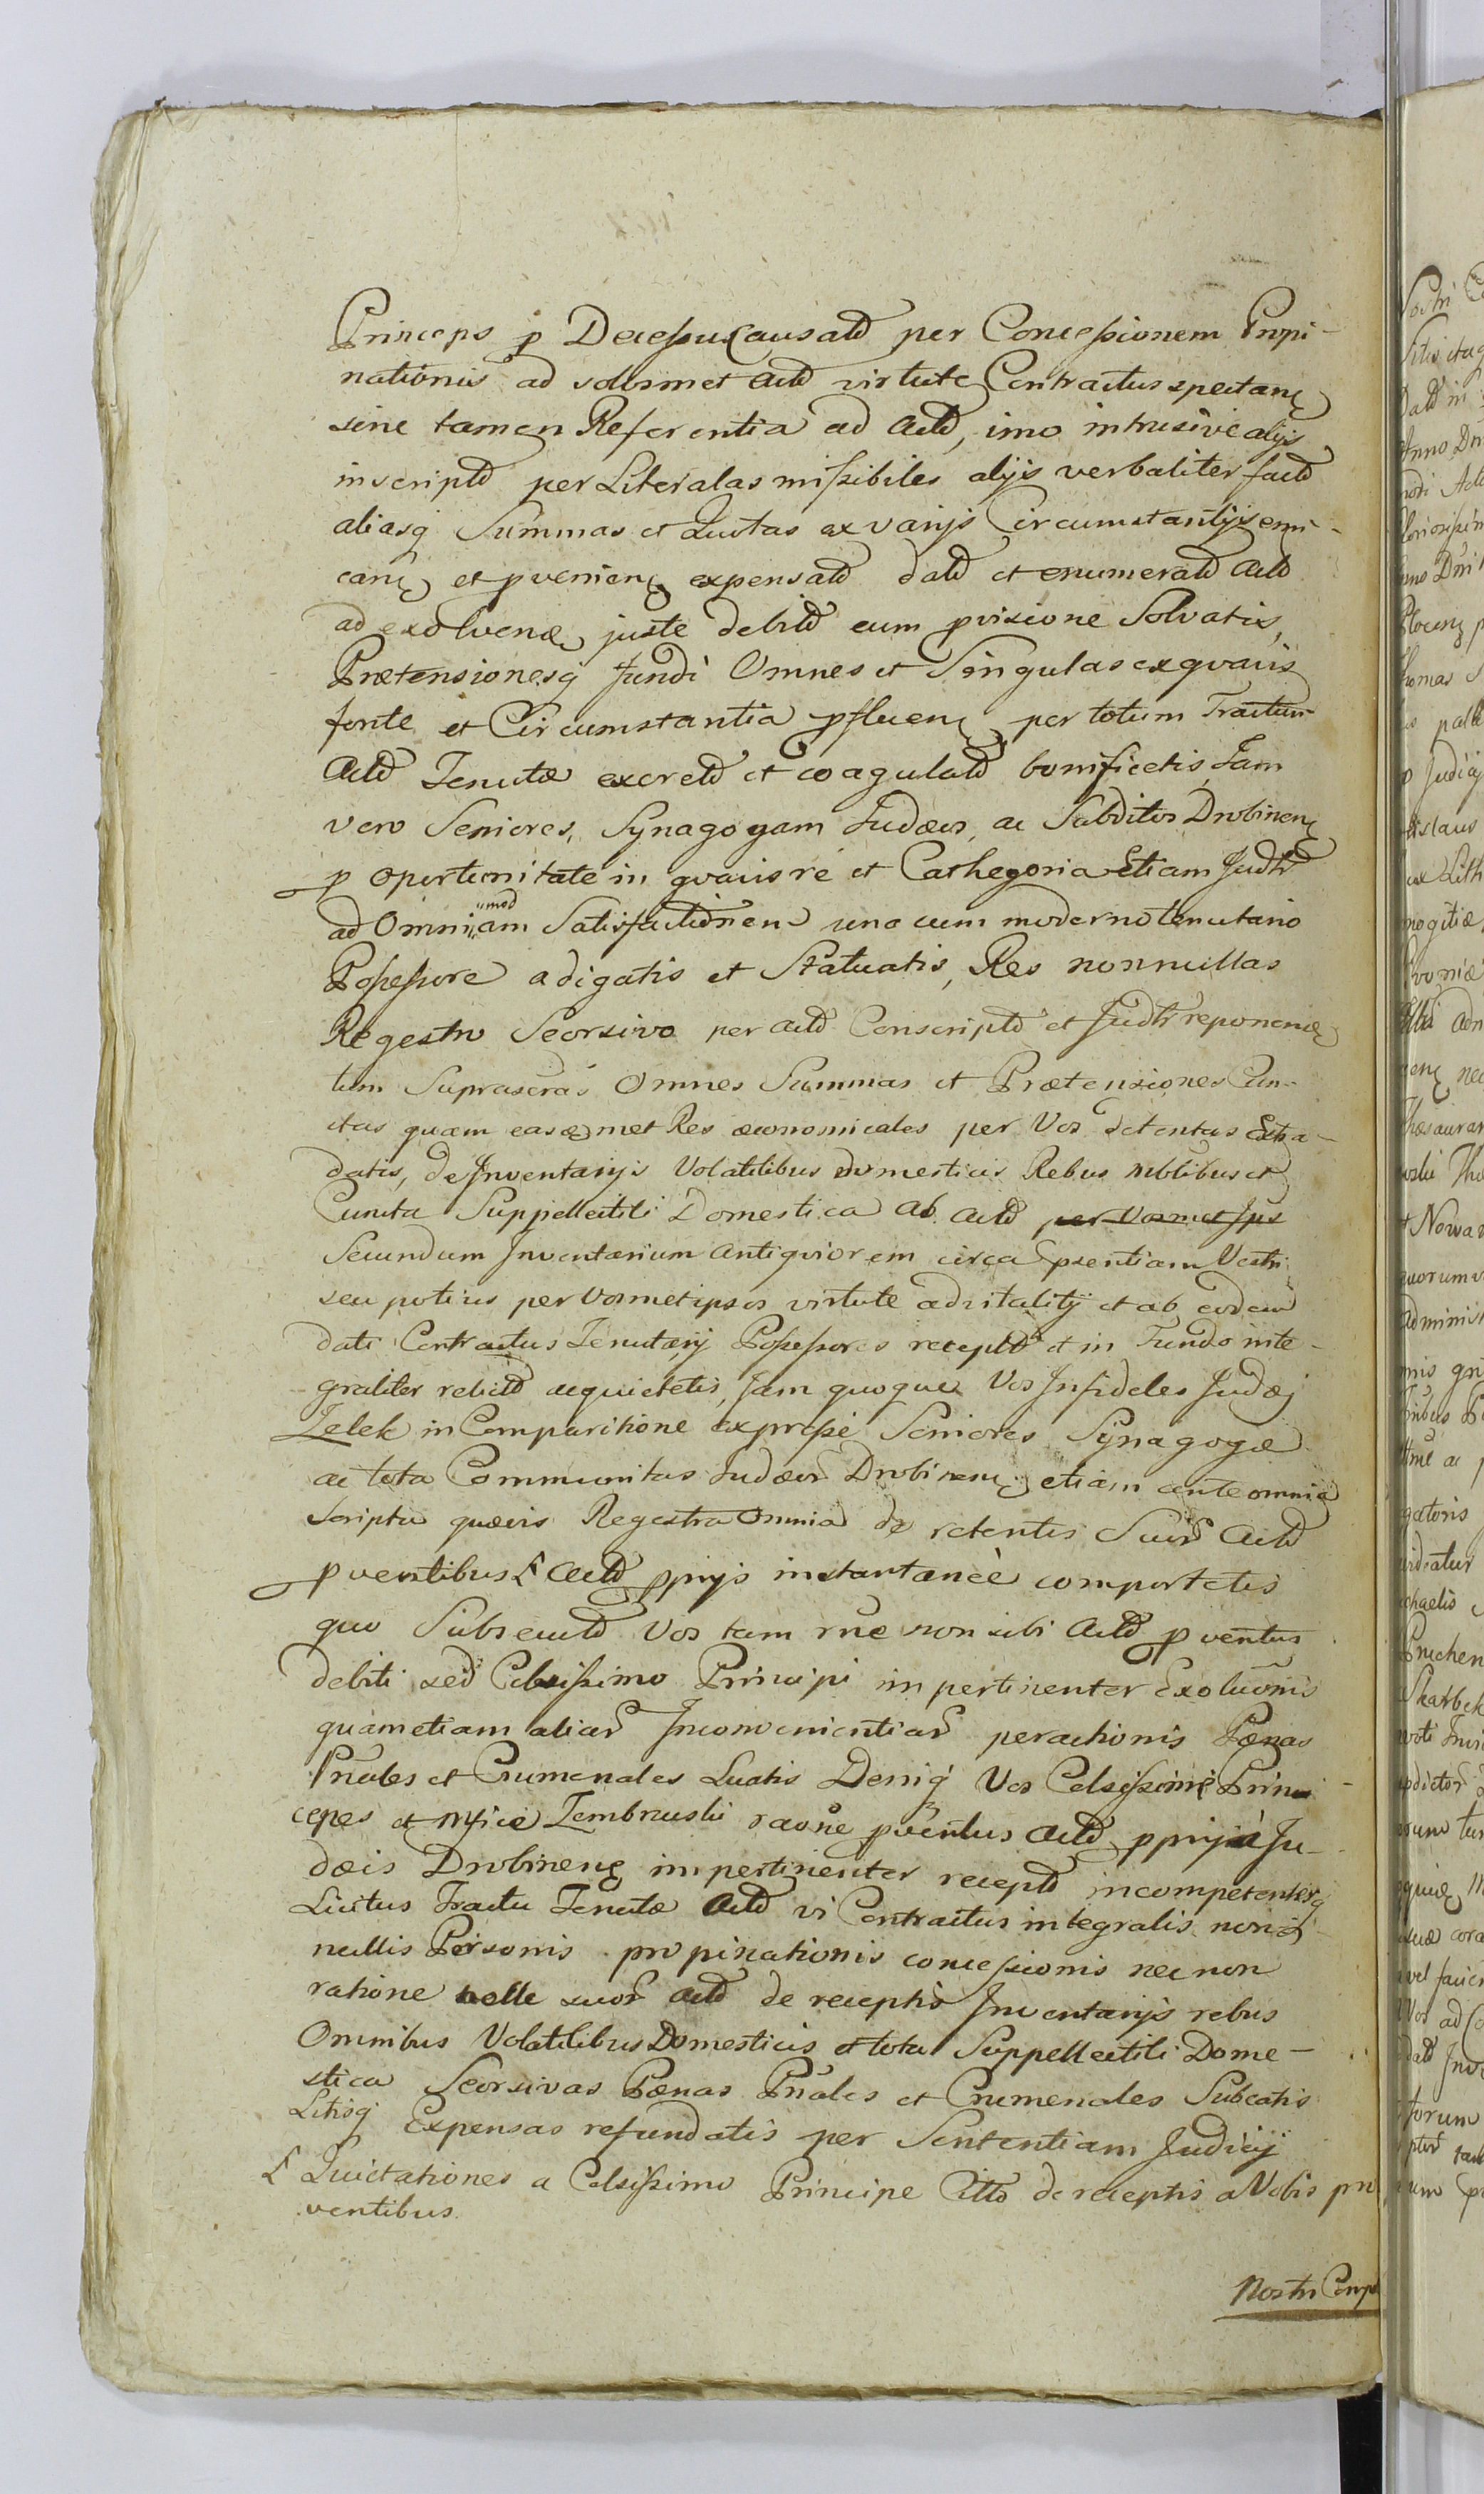 Princeps p Decessu Causatd per Concessionem Propi-
nationis ad solummet Actd virtute Contractus spectanę
sine tamen Referentia ad Actd, imo intrusive alijs
inscriptd per Literalas missibiles alijs verbaliter factd
aliasq Summas et Luctas ex varijs Circumstantijs emi-
canę et pvenienę expensatd datd et enumeratd Actd
ad exolvenę juste debitd cum pvisione Solvatis,
Prætensionesq fundi Omnes et Singulas ex qvavis
fonte et Circumstantia pfluenę per totum Tractum
Actd Tenutæ excretd et coagulatd bonificetis, Iam
vero Seniores, Synagogam Iudæos, ac Subditos Drobinenę
p oportunitate in qvavis re et Cathegoria Etiam Judtr
ad Omni"mod"am Satisfactionem una cum moderno tenutario
Possessore adigatis et Statuatis, Res nonnullas
Regestro Seorsivo per Actd Conscriptd et Judtr reponenę
tum Suprascras Omnes Summas et Prætensiones Cun-
ctas quam easdemet Res œconomicales per Vos detentas Extra-
datis, de Inventarijs Volatilibus domesticis Rebus mblibus et
Cuncta Suppellectili Domestica ab Actd per Vosmet Ips
Secundum Inventarium Antiqviorem circa psentiam Vestri
seu potius per Vosmetipsos virtute advitalitij et ab eodem
dati Contractus Tenutarij Possessores receptd et in Fundo inte-
graliter relictd acquietetis, Jam quoque Vos Infideles Judæj
Zelek in Comparitione expresse Seniores Synagogæ
ac tota Communitas Iudæor Drobinenę etiam ante omnia
Scripta quævis Regestra Omnia de retentis Suis Actd
pventibus £ Actd pprijs instantaneè comportetis
quo Subsecutd Vos tam rne non sibi Actd pventus
debiti sed Celsissimo Principi impertinenter exolucõnis
quam etiam aliar Inconvenientiar perachonis Pœnas
Pnales et Crumenales Luatis Deniq Vos Celsissime Prin
ceps et Mfice Zembrzuski raone pventus Actd pprij à Ju-
dæis Drobinenę impertinenter receptd incompetenterq
Licitus Tractu Tenutæ Actd vi Contractus integralis non
nullis Personis propinationis concessionis nec non
ratione velle suor Actd de receptis Inventarijs rebus
Omnibus Volatilibus Domesticis et tota Suppellectili Dome-
stica Seorsivas Pœnas Pnales et Crumenales Subeatis
Litisq Expensas refundatis per Sententiam Judicij
£ Quietationes a Celsissimo Principe Citto de receptis a Vobis pro
ventibus.
Nostri Comp